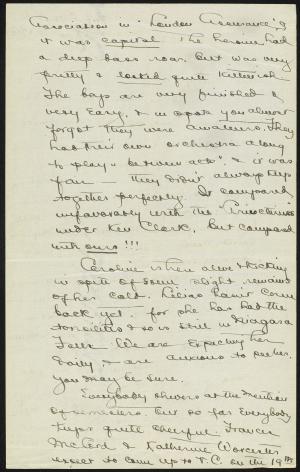 Association in "London Assurance", &
it was capital. The heroine had
a deep bass roar but was very
pretty & looked quite
The boys are very finished &
very easy, & in spots you almost
forgot they were amateurs. They
had their own orchestra along
to play "between acts" & it was
fair — they didn't always keep
together perfectly. It compared
unfavorably with the
under Ken Clark, but compared
with ours!!!
Caroline is here alive & kicking
in spite of some slight remains
of her cold. Lilias hasn't come
back yet. for she has had the
tonsilitis & so is still in Niagara
Falls. We are expecting her
daily, & are anxious to see her,
you may be sure.
Everybody shivers at the mention
of but so far everybody
keeps quite cheerful. Frances
McCord & Katherine Worcester
expect to come up to T. C. on the 19th